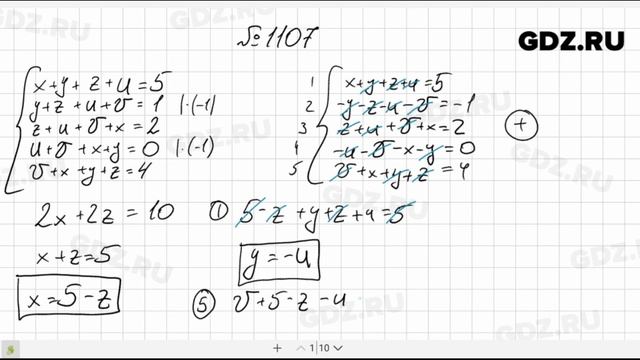 №1107
GDZ.RU
x+y+z+u=5
y+z+u+v=1 |·(-1)
z+u+v+x=2
u+v+x+y=0 |·(-1)
v+x+y+z=4
1 x+y+z+u=5
2 -y-z-u-v=-1
3 z+u+v+x=2
4 -u-v-x-y=0
5 v+x+y+z=4
+
2x+2z=10
x+z=5
x=5-z
① 5-z+y+z+u=5
y=-u
⑤ v+5-z-u
+ 1|10